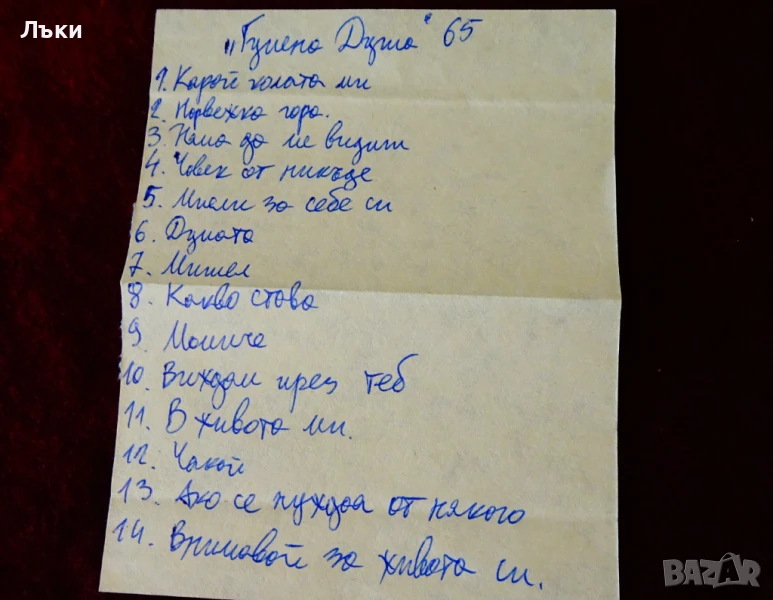 Лъки
„Гумена Душа" 65
1. Карай колата ми
2. Норвежка гора.
3. Няма да ме видиш
4. Човек от никъде
5. Мисли за себе си
6. Думата
7. Мишел
8. Какво става
9. Момиче
10. Виждам през теб
11. В живота ми.
12. Чакай
13. Ако се нуждая от някого
14. Бричовой за живота си.
BAZAR